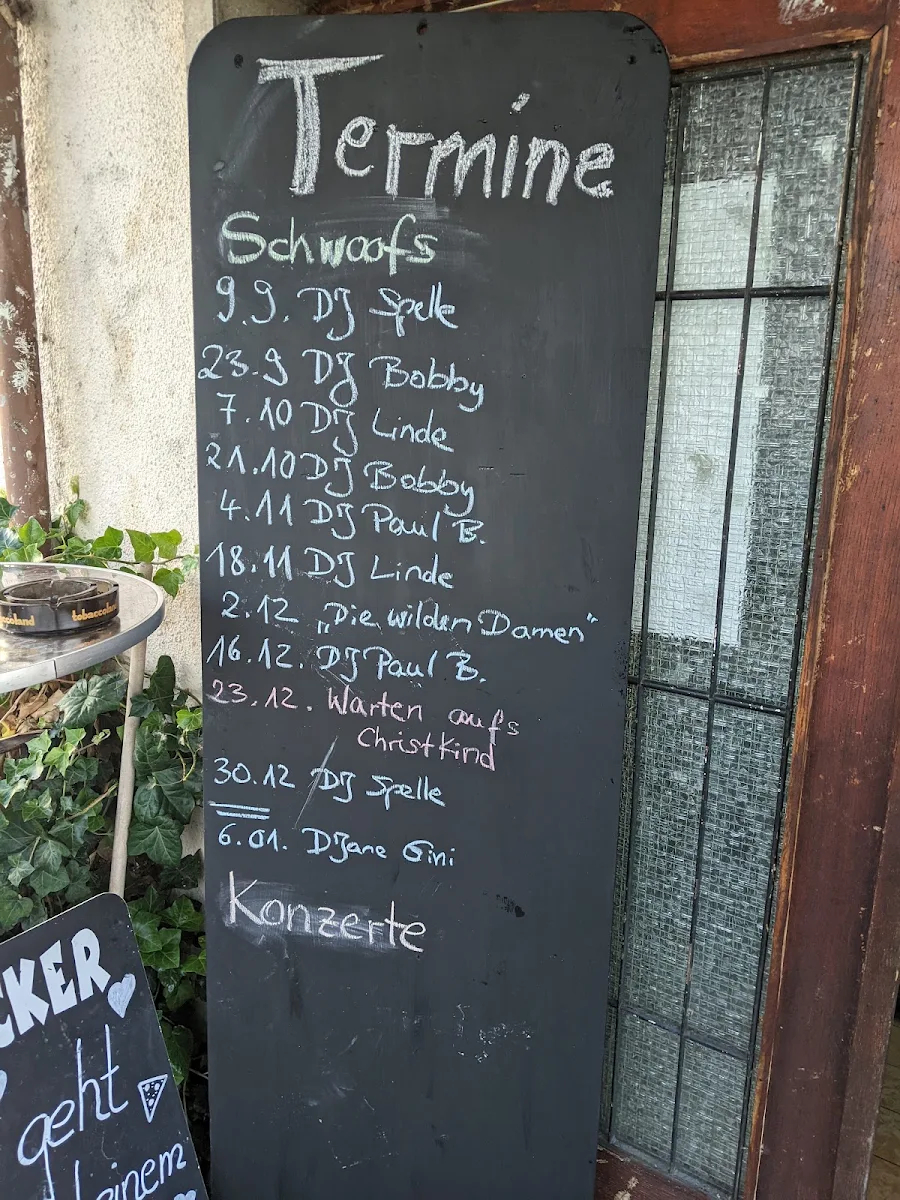 Termine
Schwoofs
9.9. DJ Spelle
23.9 DJ Bobby
7.10 DJ Linde
21.10 DJ Bobby
4.11 DJ Paul B.
18.11 DJ Linde
2.12 „Die wilden Damen“
16.12. DJ Paul B.
23.12. Warten aufs
Christkind
30.12 DJ Spelle
6.01. DJane Gini
Konzerte
tobaccoland
CKER
geht